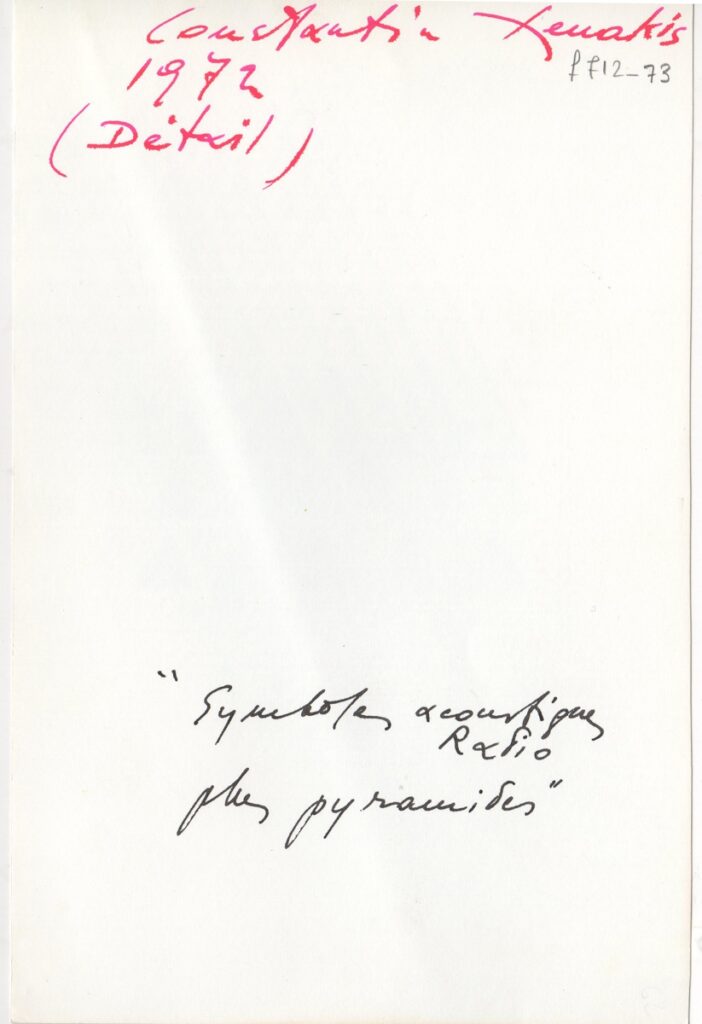 Constantin Xenakis
1972
ff12-73
(Détail)
"Symboles acoustiques
Radio
plus pyramides"